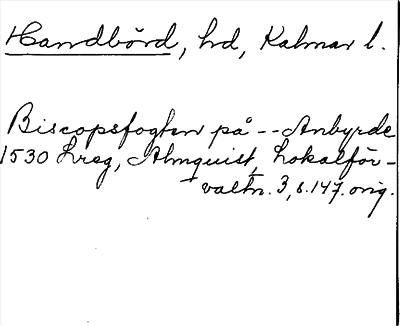 Handbörd, hd, Kalmar l.
Biscopsfogten på -- Anbyrde
1530 Lreg, Almquist, Lokalför-
valtn. 3, s. 147. orig.